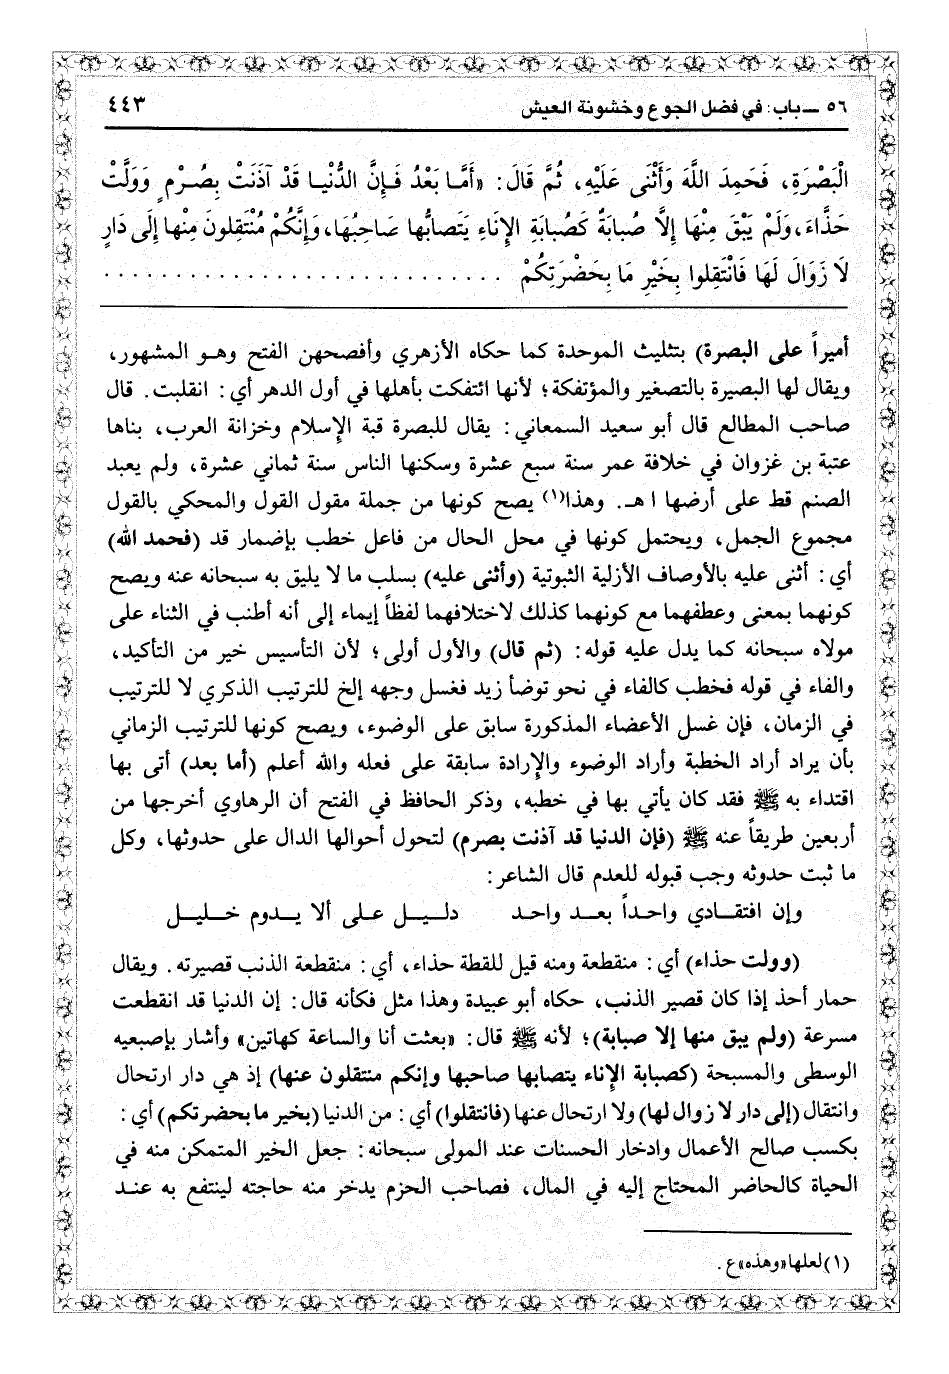 ٥٦ ـ باب: في فضل الجوع وخشونة العيش
٤٤٣
الْبَصْرَةِ، فَحَمِدَ اللَّهَ وَأَثْنَى عَلَيْهِ، ثُمَّ قَالَ: «أَمَّا بَعْدُ فَإِنَّ الدُّنْيَا قَدْ آذَنَتْ بِصُرْمٍ وَوَلَّتْ
حَذَّاءَ، وَلَمْ يَبْقَ مِنْهَا إِلاَّ صُبَابَةٌ كَصُبَابَةِ الإِنَاءِ يَتَصَابُّهَا صَاحِبُهَا، وَإِنَّكُمْ مُنْتَقِلُونَ مِنْهَا إِلَى دَارٍ
لاَ زَوَالَ لَهَا فَانْتَقِلُوا بِخَيْرِ مَا بِحَضْرَتِكُمْ . . . . . . . . . . . . . . . . . . . . . . . . . . . .
أميراً على البصرة) بتثليث الموحدة كما حكاه الأزهري وأفصحهن الفتح وهو المشهور،
ويقال لها البصيرة بالتصغير والمؤتفكة؛ لأنها ائتفكت بأهلها في أول الدهر أي: انقلبت. قال
صاحب المطالع قال أبو سعيد السمعاني: يقال للبصرة قبة الإسلام وخزانة العرب، بناها
عتبة بن غزوان في خلافة عمر سنة سبع عشرة وسكنها الناس سنة ثماني عشرة، ولم يعبد
الصنم قط على أرضها اهـ. وهذا(١) يصح كونها من جملة مقول القول والمحكي بالقول
مجموع الجمل، ويحتمل كونها في محل الحال من فاعل خطب بإضمار قد (فحمد الله)
أي: أثنى عليه بالأوصاف الأزلية الثبوتية (وأثنى عليه) بسلب ما لا يليق به سبحانه عنه ويصح
كونهما بمعنى وعطفهما مع كونهما كذلك لاختلافهما لفظاً إيماء إلى أنه أطنب في الثناء على
مولاه سبحانه كما يدل عليه قوله: (ثم قال) والأول أولى؛ لأن التأسيس خير من التأكيد،
والفاء في قوله فخطب كالفاء في نحو توضأ زيد فغسل وجهه إلخ للترتيب الذكري لا للترتيب
في الزمان، فإن غسل الأعضاء المذكورة سابق على الوضوء، ويصح كونها للترتيب الزماني
بأن يراد أراد الخطبة وأراد الوضوء والإرادة سابقة على فعله والله أعلم (أما بعد) أتى بها
اقتداء به ﷺ فقد كان يأتي بها في خطبه، وذكر الحافظ في الفتح أن الرهاوي أخرجها من
أربعين طريقاً عنه ﷺ (فإن الدنيا قد آذنت بصرم) لتحول أحوالها الدال على حدوثها، وكل
ما ثبت حدوثه وجب قبوله للعدم قال الشاعر:
وإن افتقادي واحداً بعد واحد     دليل على ألا يدوم خليل
(وولت حذاء) أي: منقطعة ومنه قيل للقطة حذاء، أي: منقطعة الذنب قصيرته. ويقال
حمار أحذ إذا كان قصير الذنب، حكاه أبو عبيدة وهذا مثل فكأنه قال: إن الدنيا قد انقطعت
مسرعة (ولم يبق منها إلا صبابة)؛ لأنه ﷺ قال: «بعثت أنا والساعة كهاتين» وأشار بإصبعيه
الوسطى والمسبحة (كصبابة الإناء يتصابها صاحبها وإنكم منتقلون عنها) إذ هي دار ارتحال
وانتقال (إلى دار لا زوال لها) ولا ارتحال عنها (فانتقلوا) أي: من الدنيا (بخير ما بحضرتكم) أي:
بكسب صالح الأعمال وادخار الحسنات عند المولى سبحانه: جعل الخير المتمكن منه في
الحياة كالحاضر المحتاج إليه في المال، فصاحب الحزم يدخر منه حاجته لينتفع به عند
(١) لعلها «وهذه» ع.